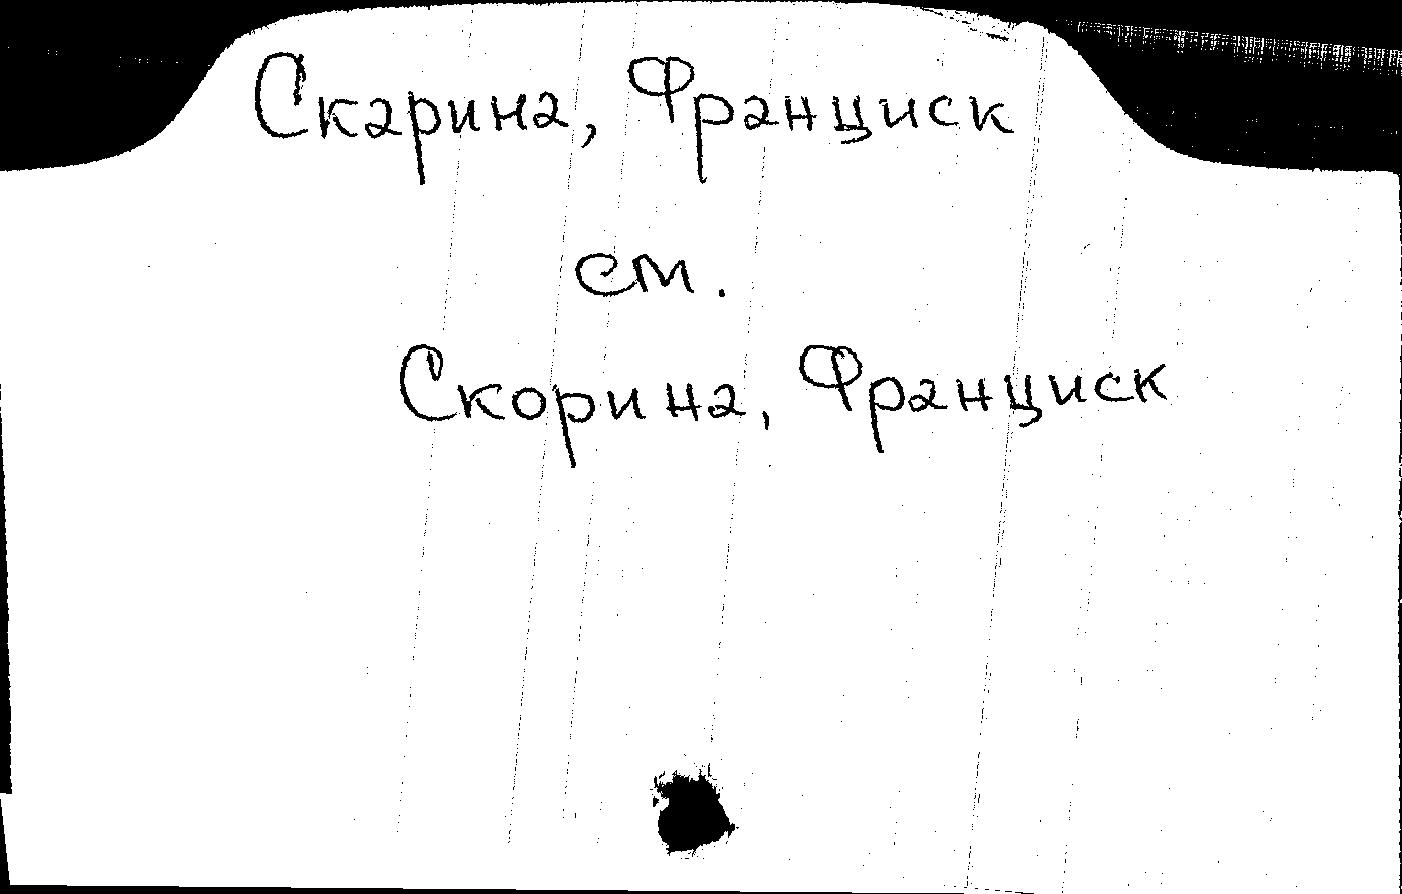 Скарина, Франциск
см.
Скорина, Франциск